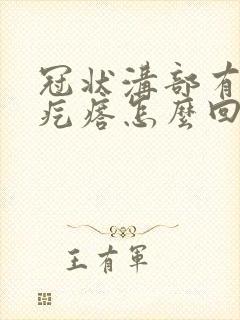 冠状溝部有
疙瘩怎麼回
王有軍